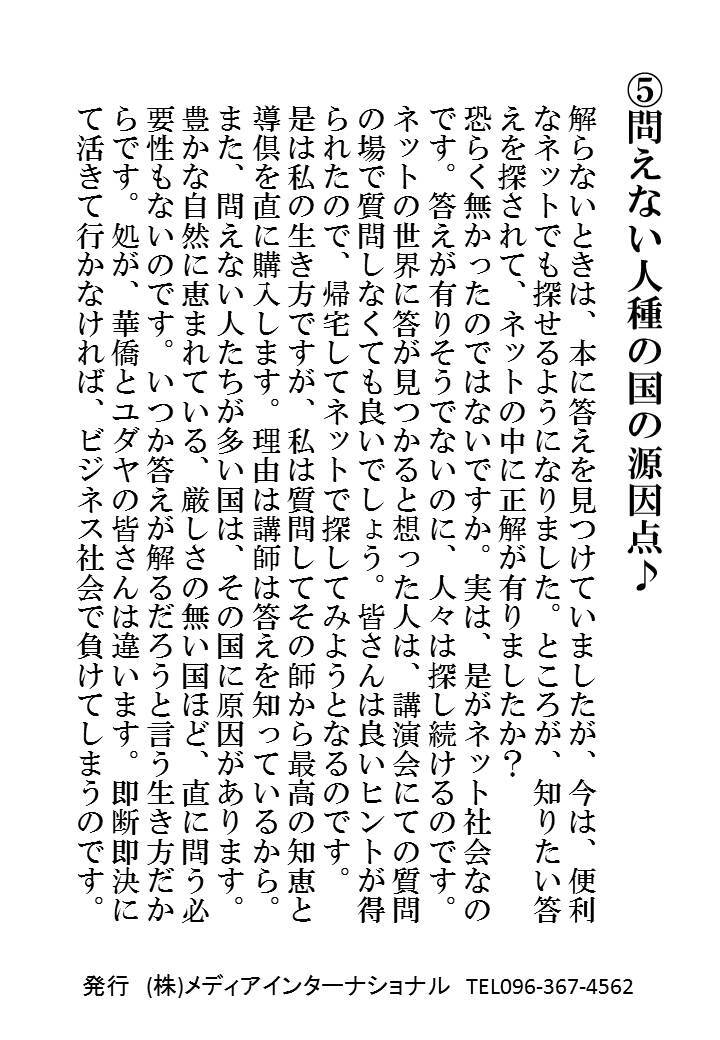 ⑤問えない人種の国の源因点♪
解らないときは、本に答えを見つけていましたが、今は、便利
なネットでも探せるようになりました。ところが、知りたい答
えを探されて、ネットの中に正解が有りましたか？
恐らく無かったのではないですか。実は、是がネット社会なの
です。答えが有りそうでないのに、人々は探し続けるのです。
ネットの世界に答が見つかると想った人は、講演会にての質問
の場で質問しなくても良いでしょう。皆さんは良いヒントが得
られたので、帰宅してネットで探してみようとなるのです。
是は私の生き方ですが、私は質問してその師から最高の知恵と
導倶を直に購入します。理由は講師は答えを知っているから。
また、問えない人たちが多い国は、その国に原因があります。
豊かな自然に恵まれている、厳しさの無い国ほど、直に問う必
要性もないのです。いつか答えが解るだろうと言う生き方だか
らです。処が、華僑とユダヤの皆さんは違います。即断即決に
て活きて行かなければ、ビジネス社会で負けてしまうのです。
発行 (株)メディアインターナショナル TEL096-367-4562